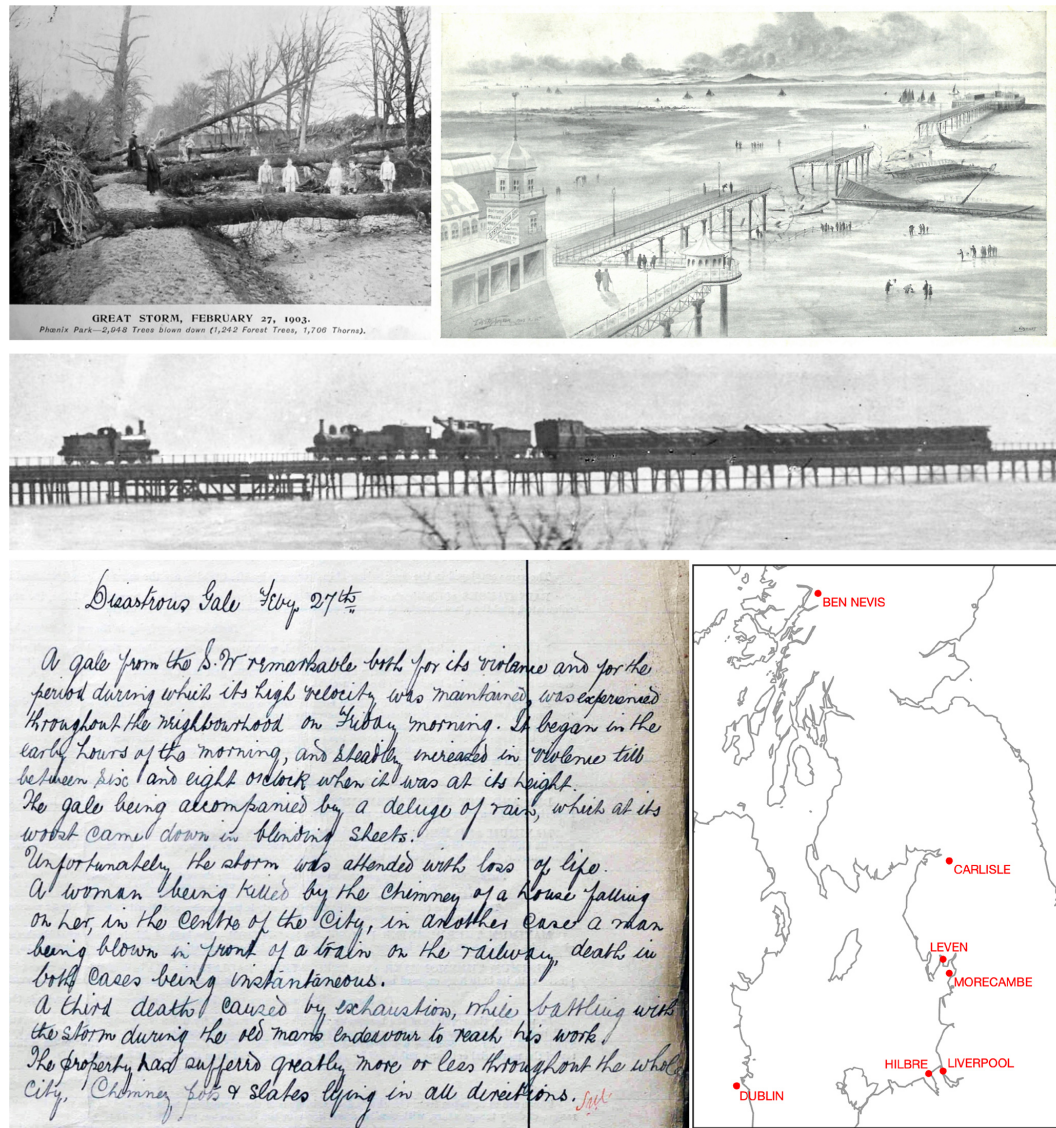 GREAT STORM, FEBRUARY 27, 1903.
Phœnix Park—2,948 Trees blown down (1,242 Forest Trees, 1,706 Thorns).
Disastrous Gale Feby. 27th
A gale from the S.W remarkable both for its violence and for the
period during which its high velocity was maintained, was experienced
throughout the neighbourhood on Friday morning. It began in the
early hours of the morning, and steadily increased in violence till
between six and eight oclock when it was at its height.
The gale being accompanied by a deluge of rain, which at its
worst came down in blinding sheets.
Unfortunately the storm was attended with loss of life.
A woman being killed by the chimney of a house falling
on her, in the centre of the city, in another case a man
being blown in front of a train on the railway, death in
both cases being instantaneous.
A third death caused by exhaustion, while battling with
the storm during the old mans endeavour to reach his work.
The property has sufferd greatly more or less throughout the whole
city, Chimney pots & slates lying in all directions.
BEN NEVIS
CARLISLE
LEVEN
MORECAMBE
HILBRE
LIVERPOOL
DUBLIN